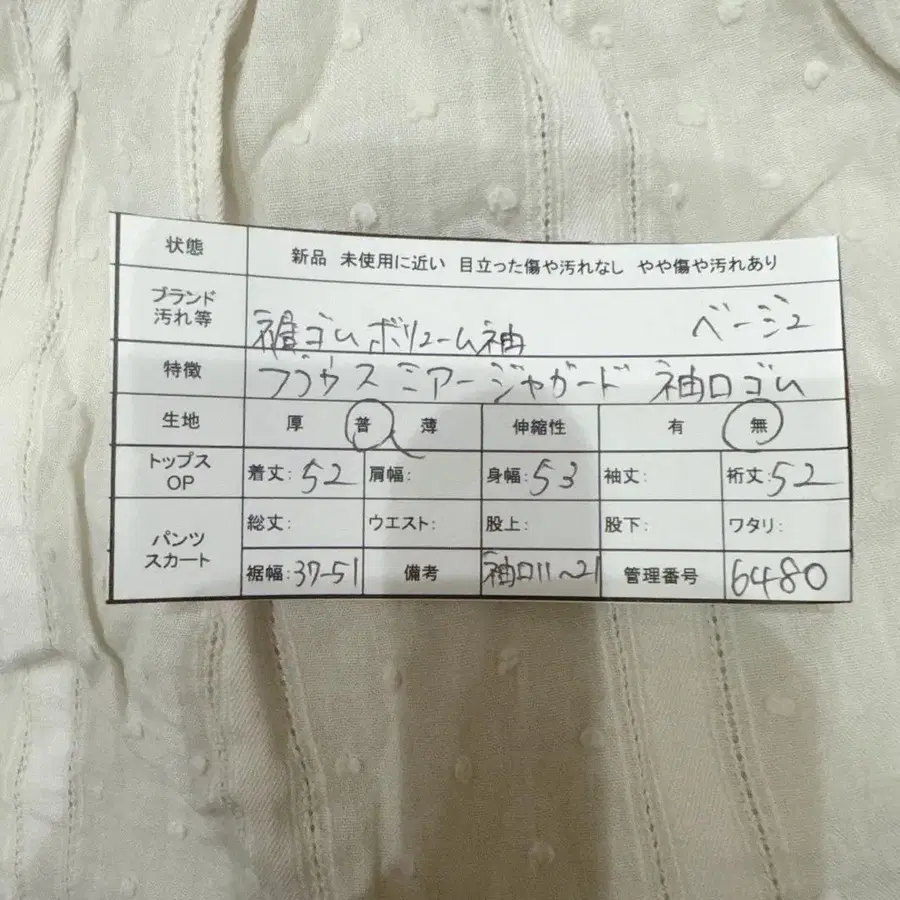 状態 新品 未使用に近い 目立った傷や汚れなし やや傷や汚れあり
ブランド
汚れ等 裾ゴムボリューム袖 ベージュ
特徴 ブラウス ミアージャガード 袖口ゴム
生地 厚 普 薄 伸縮性 有 無
トップス
OP 着丈: 52 肩幅: 身幅: 53 袖丈: 裄丈: 52
パンツ
スカート 総丈: ウエスト: 股上: 股下: ワタリ:
裾幅: 37-51 備考 袖口11~21 管理番号 6480